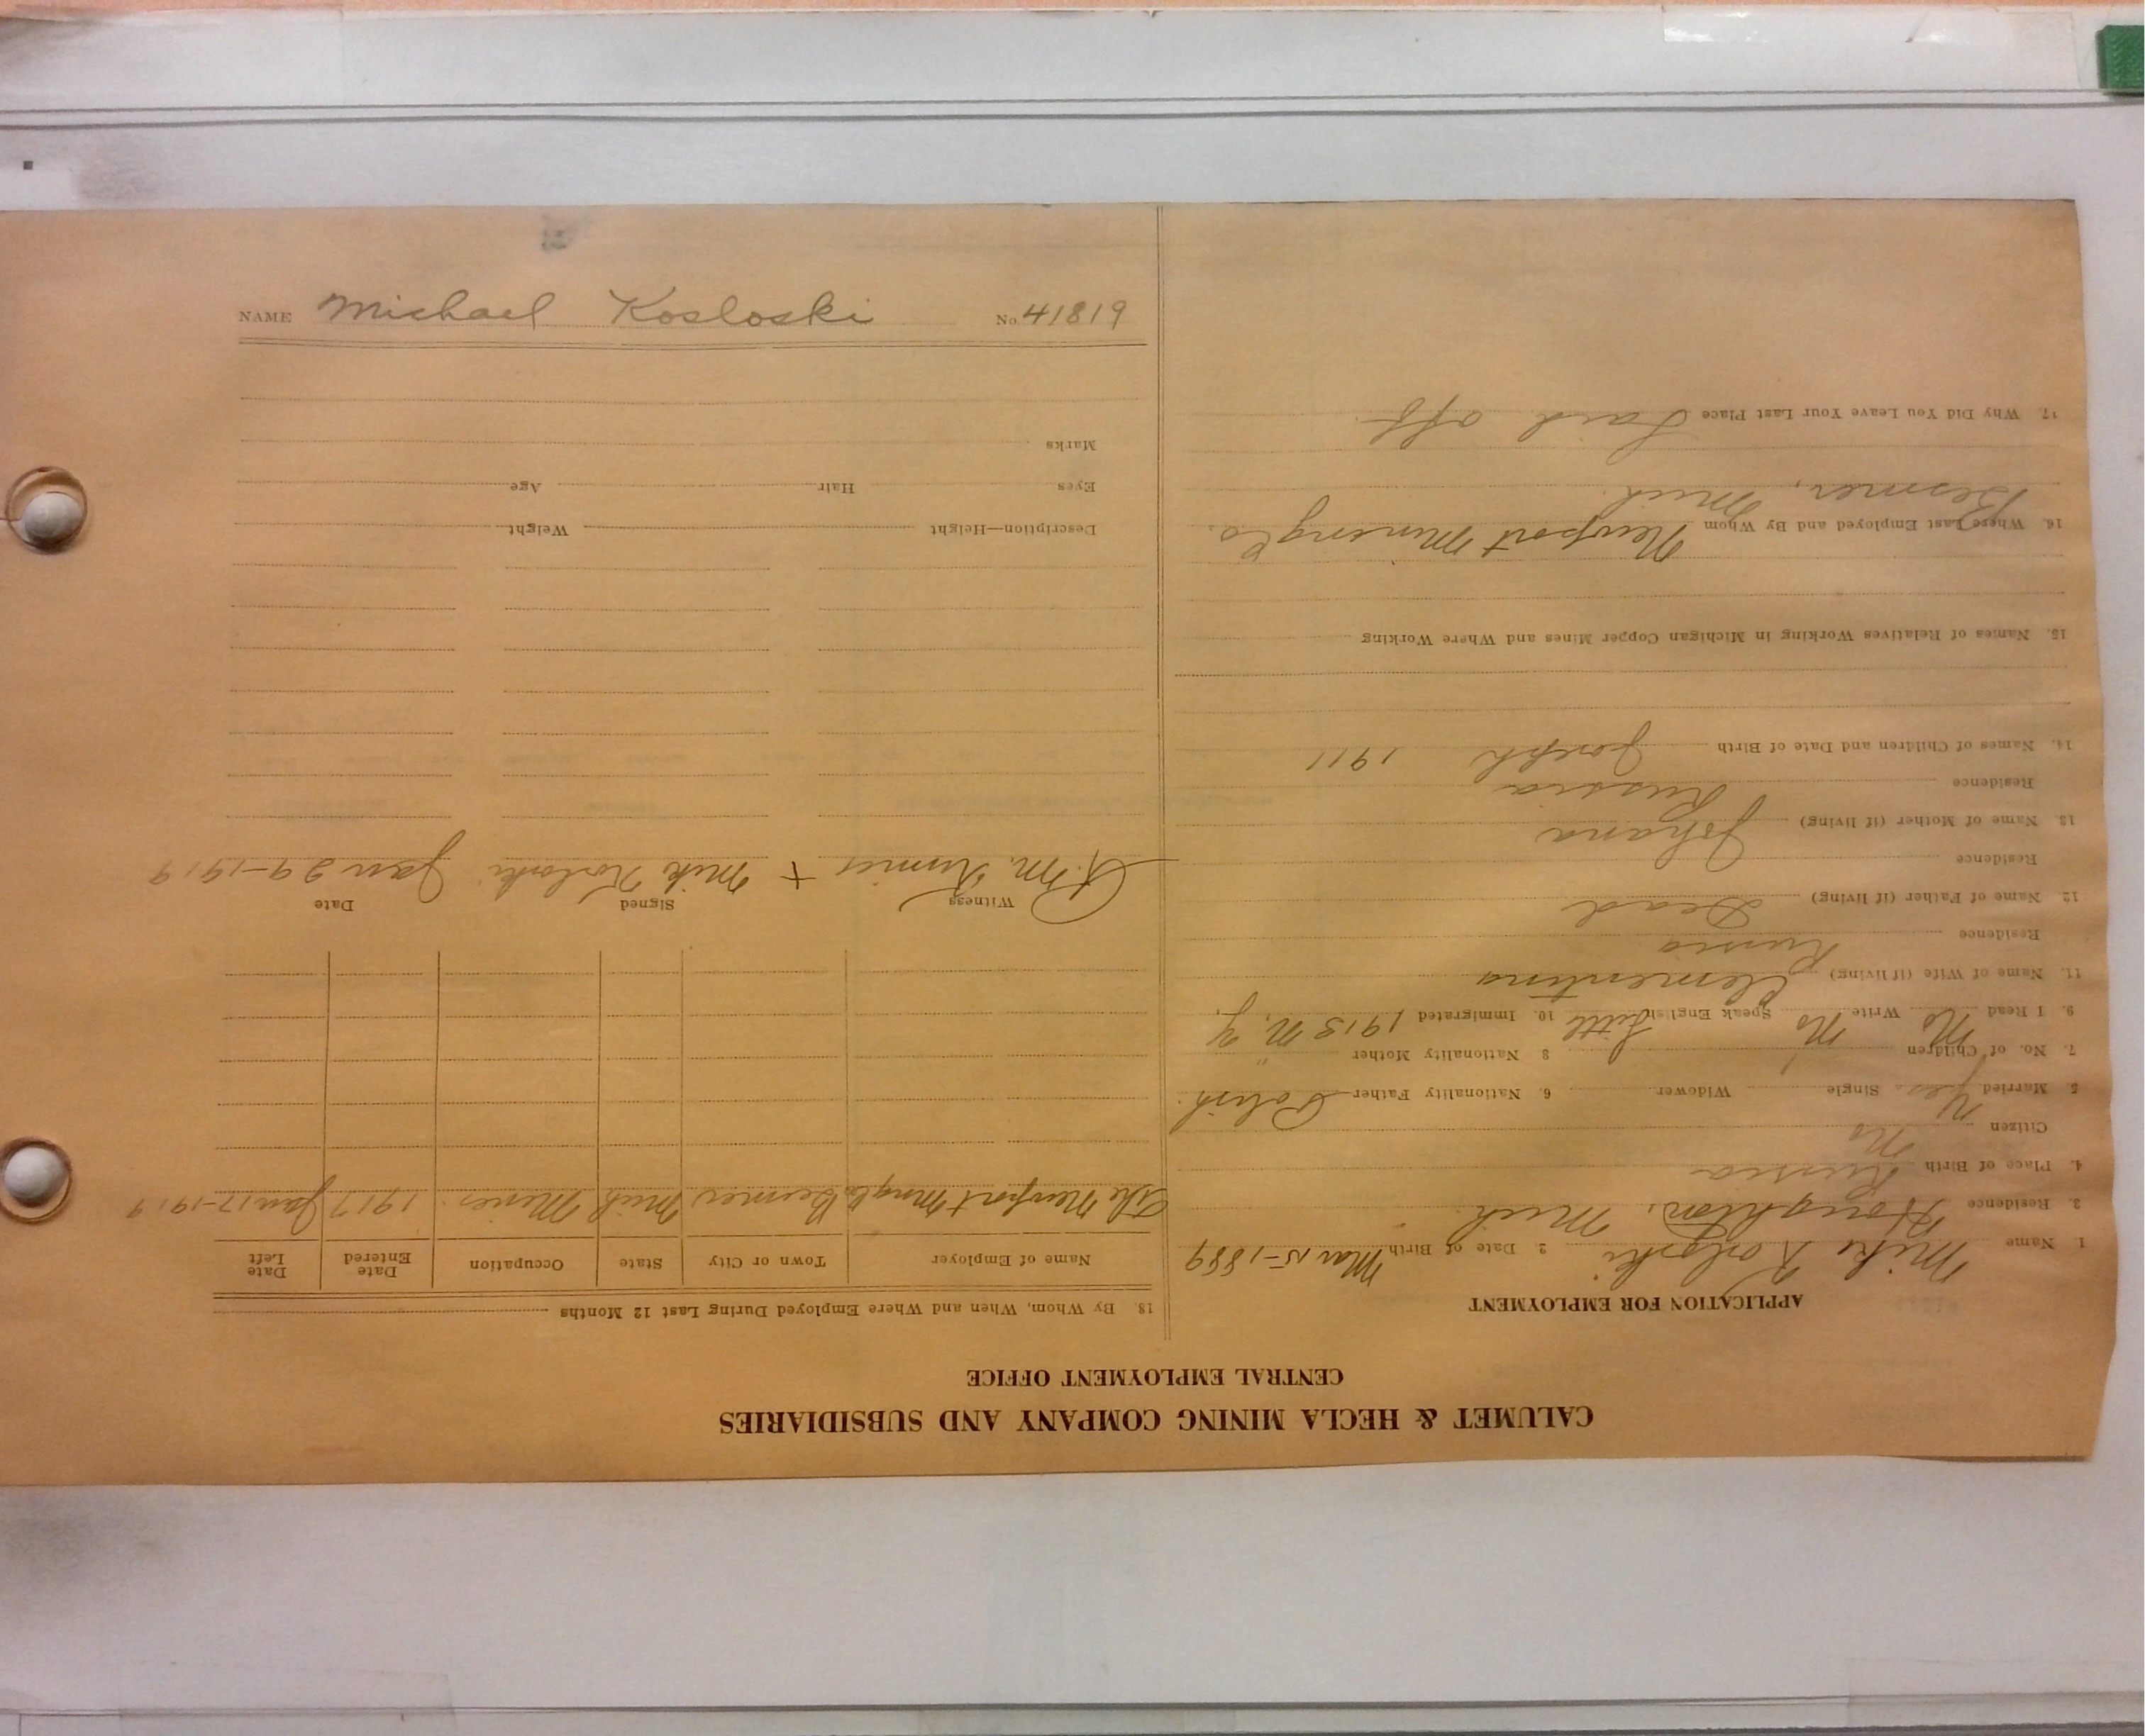 CALUMET & HECLA MINING COMPANY AND SUBSIDIARIES
CENTRAL EMPLOYMENT OFFICE
APPLICATION FOR EMPLOYMENT
1. Name Mike Kosloski 2. Date of Birth Mar 15-1889
3. Residence Houghton, Mich.
4. Place of Birth Russia
Citizen No
5. Married Yes. Single Widower 6. Nationality Father Polish.
7. No. of Children 1 8 Nationality Mother "
9. I Read No Write No Speak English Little 10. Immigrated 1913 N.Y.
11. Name of Wife (if living) Clementina
Residence Russia
12. Name of Father (if living) Dead
Residence
13. Name of Mother (if living) Johana
Residence Russia
14. Names of Children and Date of Birth Joseph 1911
15. Names of Relatives Working in Michigan Copper Mines and Where Working
16. Where Last Employed and By Whom Newport Mining Co.
Besmer, Mich.
17. Why Did You Leave Your Last Place Laid off
18. By Whom, When and Where Employed During Last 12 Months
Name of Employer Town or City State Occupation Date Entered Date Left
The Newport Mng Co Besmer Mich Miner. 1917 Jan 17-1919
Witness Signed Date
M. + Mike Kosloski Jan 29-1919
Description—Height Weight
Eyes Hair Age
Marks
NAME Michael Kosloski No 41819